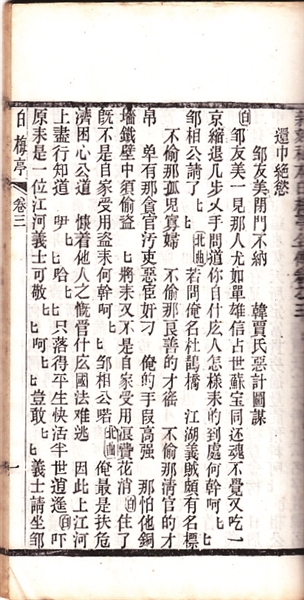 還巾絕慾
鄒友美閉門不納　韓賈氏惡計圖謀
(白)鄒友美一見那人尤如單雄信占世蘇宝同还魂不覺又吃一
京縮退几步乂手問道你自什庅人怎樣來的到處何幹呵ヒヒ
鄒相公請了ヒ(北曲)若問俺名杜鵑橋　江湖義賊頗有名標
不偷那孤児寡婦　不偷那良善的才衜　不偷那清官的才
帛　单有那食官汚吏惡宦奸刁　俺的手段高强　那怕他銅
墻鐵壁中須偷盗ヒ將來又不是自家受用浪費花消(白)住了
既不是自家受用盗來何幹呵ヒヒ鄒相公喏(北曲)俺最是扶危
濟困心公道　慷着他人之慨官什庅國法难逃　因此上江河
上盡行知道　呀ヒ哈ヒヒ只落得平生快活半世道遙(白)吓
原來是一位江河義士可敬ヒヒ呵ヒヒ豈敢ヒヒ義士請坐鄒
白梅亭　卷三
一